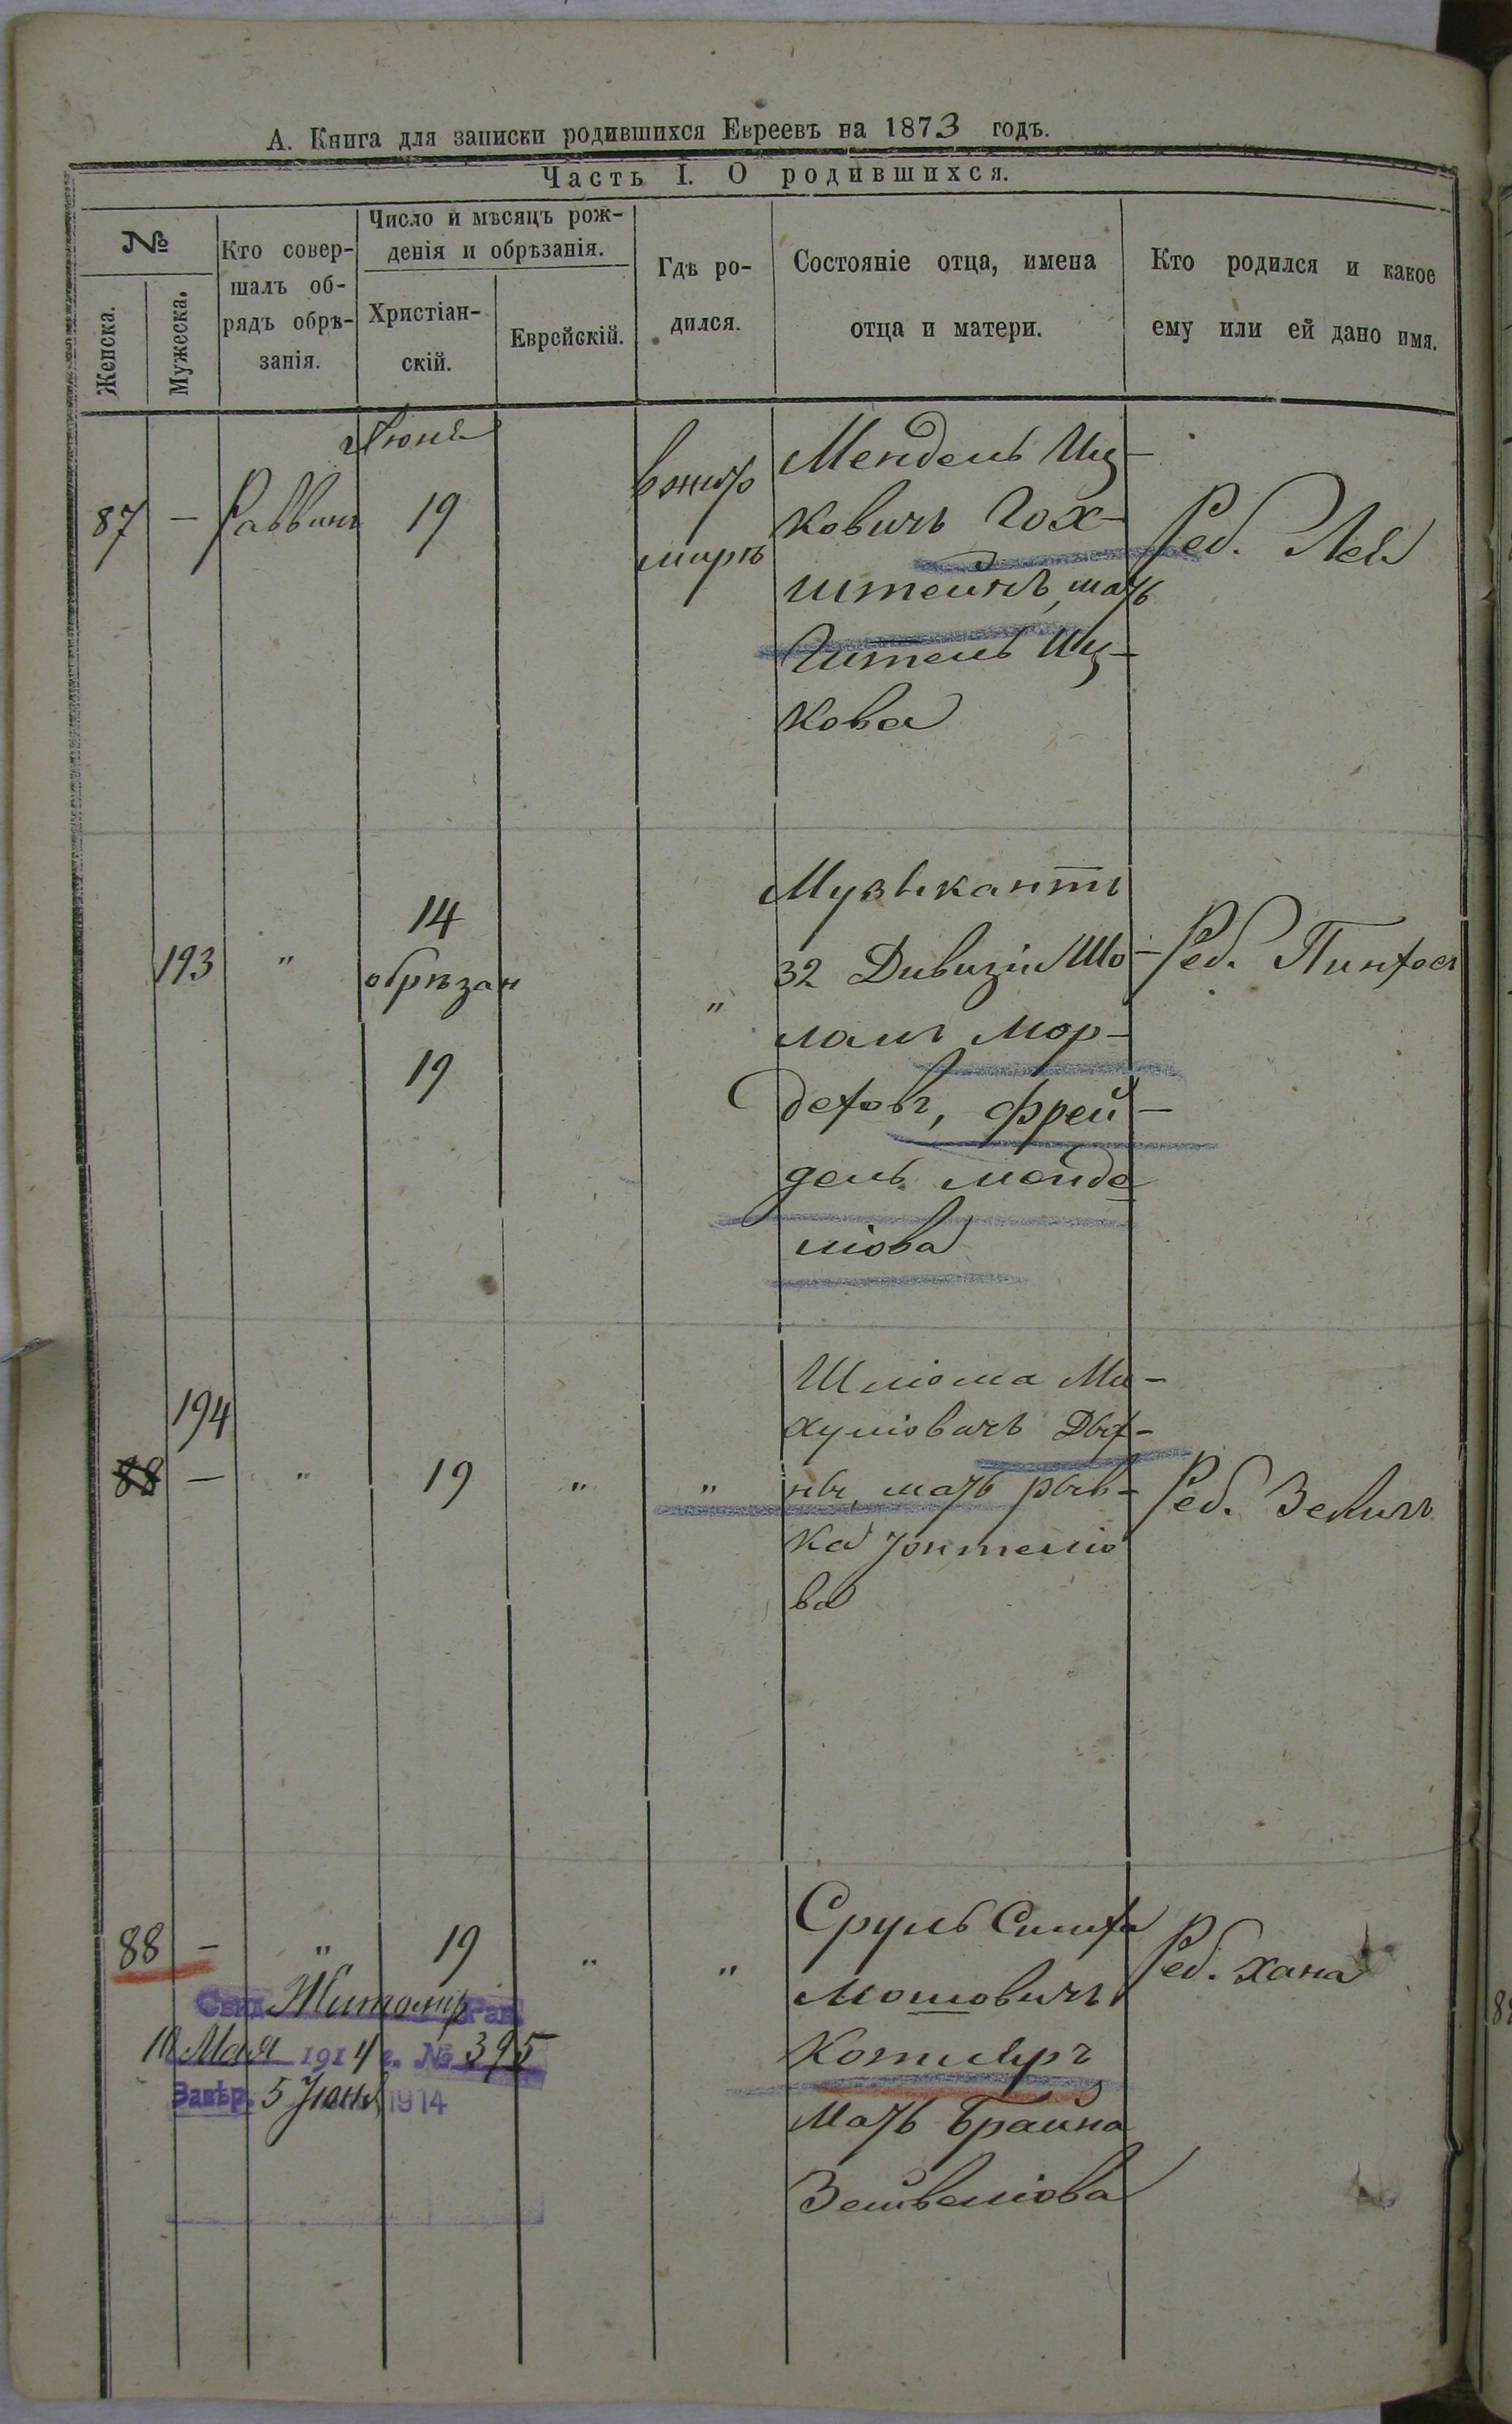 А. Книга для записки родившихся Евреевъ на 1873 годъ.
Часть I. О родившихся.
№
Женска.
Мужеска.
Кто совер-
шалъ об-
рядъ обрѣ-
занія.
Число и мѣсяцъ рож-
денія и обрѣзанія.
Христіан-
скій.
Еврейскій.
Гдѣ ро-
дился.
Состояніе отца, имена
отца и матери.
Кто родился и какое
ему или ей дано имя.
Июня
87 — Раввинъ 19
в жито
мирѣ
Мендель Иц-
ковичъ Гох-
штейнъ, мать
Гитель Иц-
кова
Реб. Лея
193 "
14
обрѣзан
19
"
Музыкантъ
32 Дивизіи Шо-
ламъ Мор-
дховъ, Фрей-
дель Менде
ліова
Реб. Пинхосъ
194
88 — " 19 " "
Шліома Ми-
хуліовичъ
мать Рыв-
ка
ва
Реб. Зелигъ
88 — " 19 " "
Сруль Симха
Мошовичъ
Котляръ
Мать Брайна
Зейвеліова
Реб. Хана
Свид. Житомир. Рав.
10 Мая 1914 г. № 395
Завѣр. 5 Июня 1914